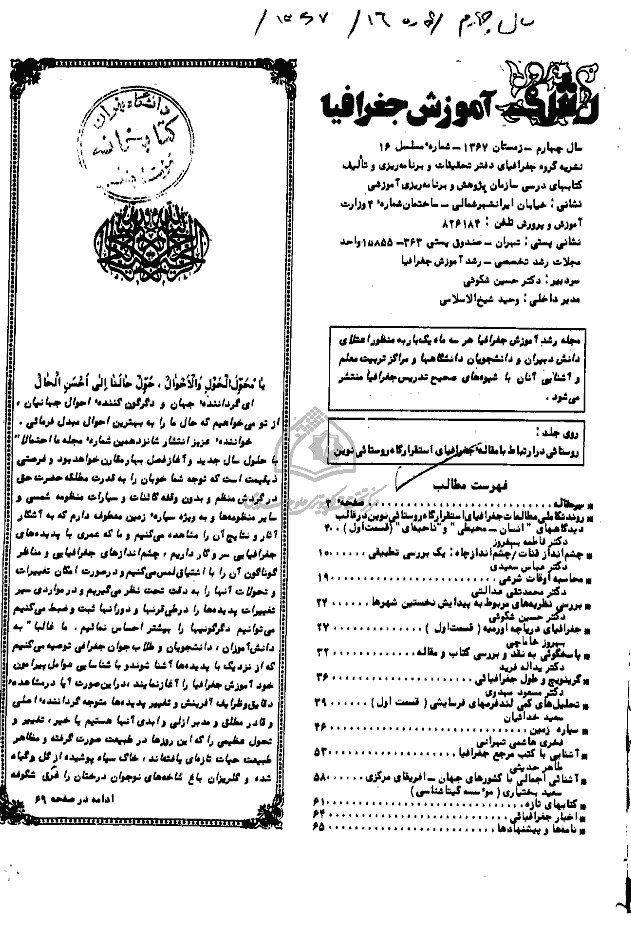 سال چهارم / شماره ۱۶ / ۱۳۶۷ /
رشد آموزش جغرافیا
سال چهارم – زمستان ۱۳۶۷ – شمارهٔ مسلسل ۱۶
نشریه گروه جغرافیای دفتر تحقیقات و برنامه‌ریزی و تألیف
کتابهای درسی سازمان پژوهش و برنامه‌ریزی آموزشی
نشانی: خیابان ایرانشهر شمالی – ساختمان شمارهٔ ۴ وزارت
آموزش و پرورش تلفن: ۸۲۶۱۸۴
نشانی پستی: تهران – صندوق پستی ۳۶۳– ۱۵۸۵۵ واحد
مجلات رشد تخصصی – رشد آموزش جغرافیا
سردبیر: دکتر حسین شکوئی
مدیر داخلی: وحید شیخ‌الاسلامی
مجله رشد آموزش جغرافیا هر سه ماه یکبار به منظور اعتلای
دانش دبیران و دانشجویان دانشگاهها و مراکز تربیت معلم
و آشنایی آنان با شیوه‌های صحیح تدریس جغرافیا منتشر
می‌شود.
روی جلد:
روستائی در ارتباط با مقالهٔ جغرافیای استقرارگاه روستائی نوین
فهرست مطالب
سرمقاله صفحهٔ ۳
روند تکاملی مطالعات جغرافیای استقرارگاه روستائی نوین در قالب
دیدگاههای "انسان – محیطی" و "ناحیه‌ای" (قسمت اول) ۴
دکتر فاطمه بهفروز
چشم‌انداز قنات/چشم‌انداز چاه: یک بررسی تطبیقی ۱۰
دکتر عباس سعیدی
محاسبه اوقات شرعی ۱۹
دکتر محمدتقی عدالتی
بررسی نظریه‌های مربوط به پیدایش نخستین شهرها ۲۴
دکتر حسین شکوئی
جغرافیای دریاچه ارومیه (قسمت اول) ۲۷
بهروز خاماچی
پاسخگوئی به نقد و بررسی کتاب و مقاله ۳۲
دکتر یداله فرید
گرینویچ و طول جغرافیائی ۳۶
دکتر مسعود مهدوی
تحلیل‌های کمی لندفرمهای فرسایشی (قسمت اول) ۳۹
سعید خدائیان
سیاره زمین ۴۶
فخری هاشمی تهرانی
آشنایی با کتب مرجع جغرافیا ۵۳
طاهر حدیثی
آشنائی اجمالی با کشورهای جهان – افریقای مرکزی ۵۸
سعید بختیاری (موسسه گیتاشناسی)
کتابهای تازه ۶۱
اخبار جغرافیائی ۶۴
نامه‌ها و پیشنهادها ۶۵
دانشگاه تهران
کتابخانه
یا مُحَوِّلَ الحَوْلِ وَالأَحْوالِ، حَوِّلْ حالَنا اِلی اَحْسَنِ الْحالْ
ای گردانندهٔ جهان و دگرگون کنندهٔ احوال جهانیان،
از تو می‌خواهیم که حال ما را به بهترین احوال مبدل فرمائی.
خوانندهٔ عزیز انتشار شانزدهمین شمارهٔ مجله ما احتمالاً
با حلول سال جدید و آغاز فصل بهار مقارن خواهد بود و فرصتی
ذیقیمت است که توجه شما خوبان را به قدرت مطلقه حضرت حق
در گردش منظم و بدون وقفه کائنات و سیارات منظومه شمسی و
سایر منظومه‌ها و به ویژه سیارهٔ زمین معطوف دارم که به آشکار
آثار و نتایج آن را مشاهده می‌کنیم و ما که عمری با پدیده‌های
جغرافیایی سر و کار داریم، چشم‌اندازهای جغرافیایی و مناظر
گوناگون آن را با اشتیاق لمس می‌کنیم و در صورت امکان تغییرات
و تحولات آنها را به دقت تحت نظر می‌گیریم و در مواردی سیر
تغییرات پدیده‌ها را در طی قرنها و دورانها ثبت و ضبط می‌کنیم
می‌توانیم دگرگونیها را بیشتر احساس نمائیم. ما غالباً به
دانش‌آموزان، دانشجویان و طلاب جوان جغرافی توصیه می‌کنیم
که از نزدیک با پدیده‌ها آشنا شوند و با شناسایی عوامل پیرامون
خود آموزش جغرافیا را آغاز نمایند، در این صورت آیا در مشاهدهٔ
دقایق و ظرایف آفرینش و تغییر پدیده‌ها متوجه گردانندهٔ اصلی
و قادر مطلق و مدبر ازلی و ابدی آنها هستیم یا خیر، تغییر و
تحول عظیمی را که این روزها در طبیعت صورت گرفته و مظاهر
طبیعت حیات تازه‌ای یافته‌اند، خاک سیاه پوشیده از گل و گیاه
شده و گلریزان باغ شاخه‌های نوجوان درختان را غرق شکوفه
ادامه در صفحه ۶۹